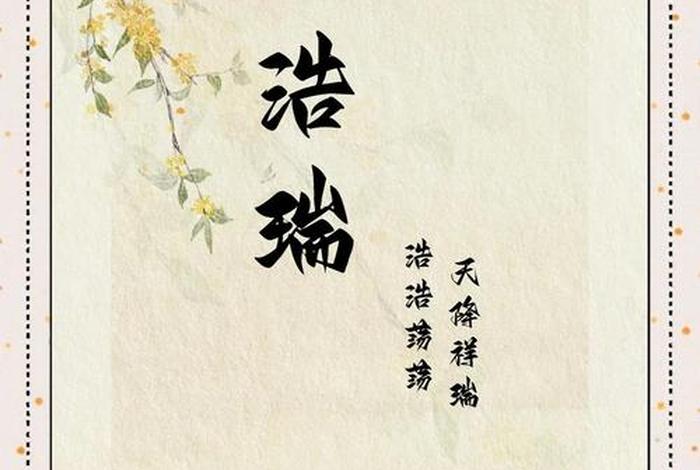 浩瑞
浩浩荡荡
天降祥瑞